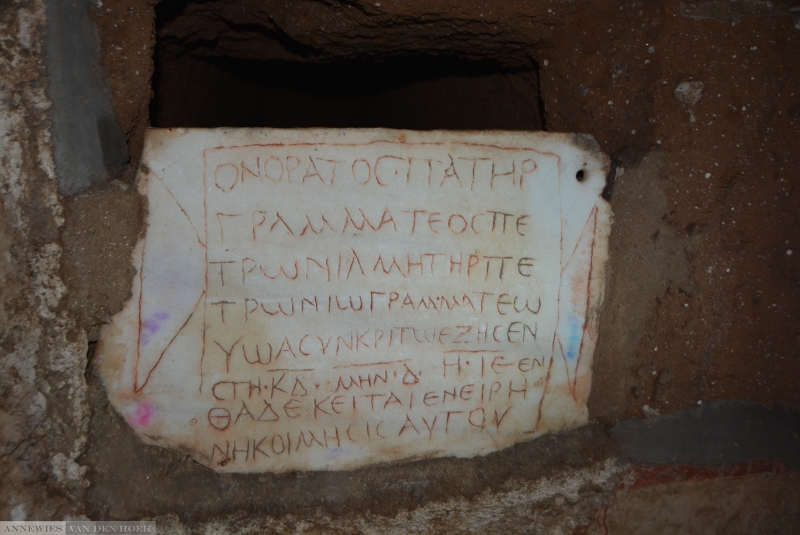 ΟΝΟΡΑΤΟΣ·ΠΑΤΗΡ
ΓΡΑΜΜΑΤΕΟϹΠΕ
ΤΡΩΝΙΑΜΗΤΗΡΠΕ
ΤΡΩΝΙΩΓΡΑΜΜΑΤΕΩ
ΥΩΑϹΥΝΚΡΙΤΩΕΖΗϹΕΝ
ϹΤΗ·ΚΔ·ΜΗΝ·Δ·Η·ΙΕ·ΕΝ
ΘΑΔΕ·ΚΕΙΤΑΙΕΝΕΙΡΗ
ΝΗΚΟΙΜΗϹΙϹΑΥΤΟΥ
ANNEWIES VAN DEN HOEK